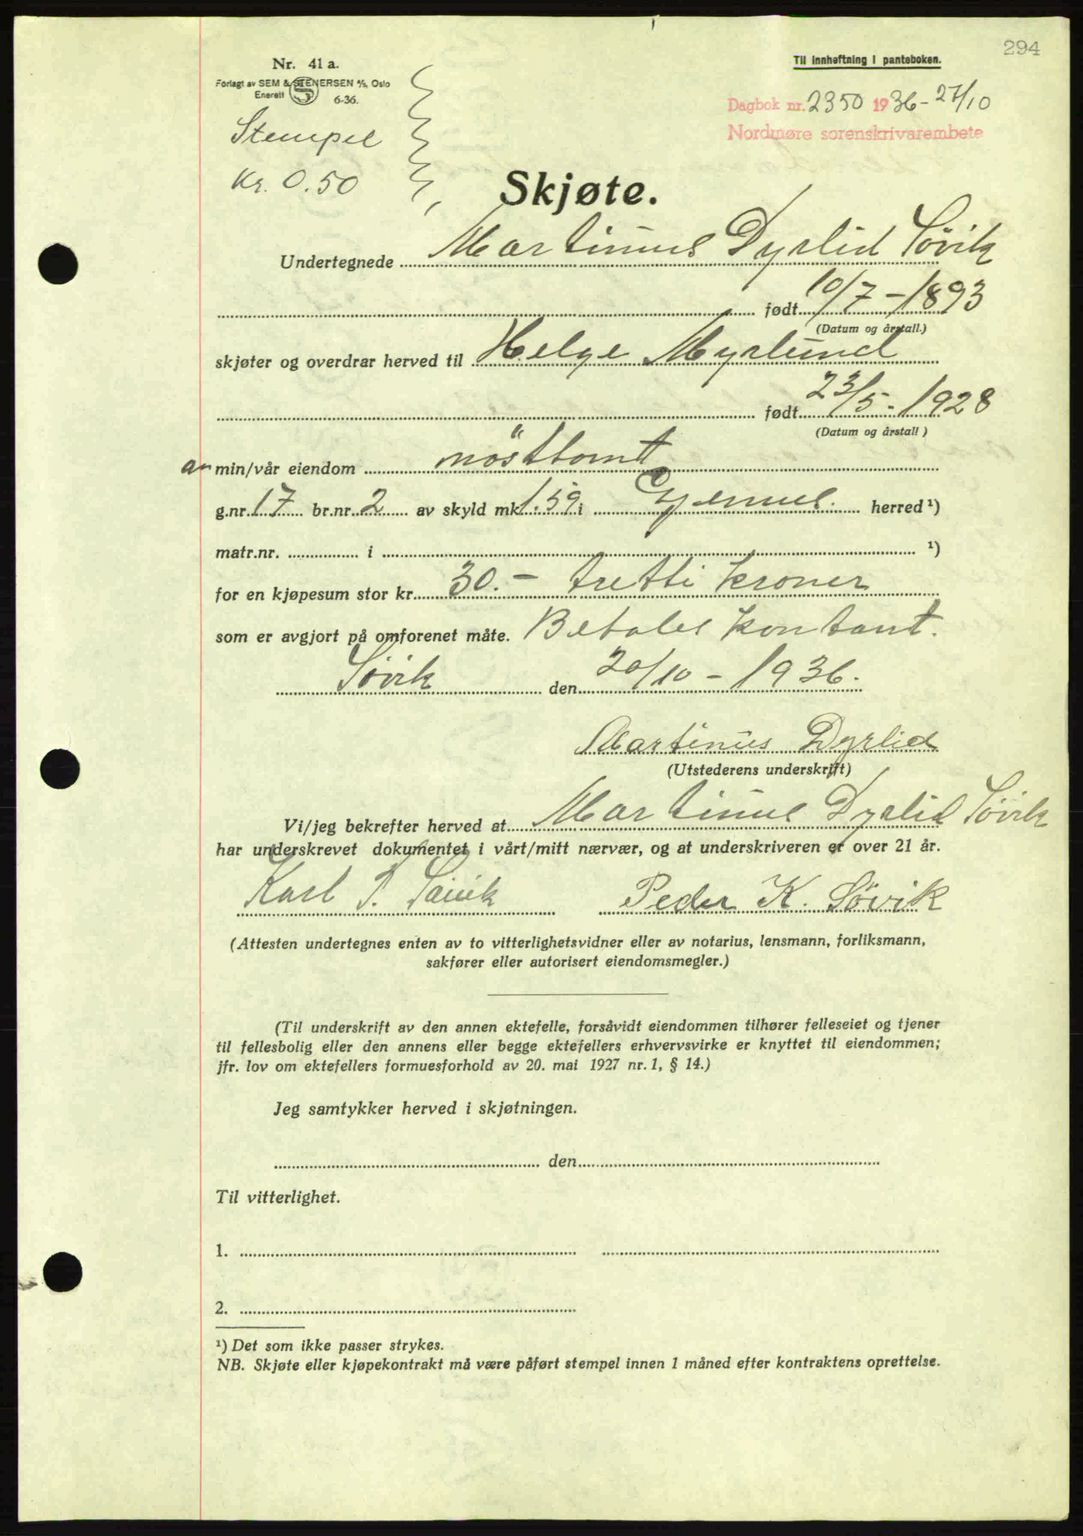 294
Nr. 41 a.
Forlagt av SEM & STENERSEN A/S, Oslo
Enerett S 6-36.
Til innheftning i panteboken.
Dagbok nr. 2350 1936 - 27/10
Nordmøre sorenskrivarembete
Stempel
Kr. 0.50
Skjøte.
Undertegnede Martinus Dyrlid Søvik
født 10/7 - 1893
(Datum og årstall.)
skjøter og overdrar herved til Helge Myrlund
født 23/5 - 1928
(Datum og årstall)
av min/vår eiendom nösttomt
g.nr. 17 br.nr. 2 av skyld mk 1.59 i herred ¹)
matr.nr. i ¹)
for en kjøpesum stor kr. 30.- tretti kroner
som er avgjort på omforenet måte. Betales kontant.
Søvik den 20/10 - 1936.
Martinus Dyrlid
(Utstederens underskrift)
Vi/jeg bekrefter herved at Martinus Dyrlid Søvik
har underskrevet dokumentet i vårt/mitt nærvær, og at underskriveren er over 21 år.
Karl P. Søvik Peder K. Søvik
(Attesten undertegnes enten av to vitterlighetsvidner eller av notarius, lensmann, forliksmann,
sakfører eller autorisert eiendomsmegler.)
(Til underskrift av den annen ektefelle, forsåvidt eiendommen tilhører felleseiet og tjener
til fellesbolig eller den annens eller begge ektefellers erhvervsvirke er knyttet til eiendommen;
jfr. lov om ektefellers formuesforhold av 20. mai 1927 nr. 1, § 14.)
Jeg samtykker herved i skjøtningen.
den
Til vitterlighet.
1.
2.
¹) Det som ikke passer strykes.
NB. Skjøte eller kjøpekontrakt må være påført stempel innen 1 måned efter kontraktens oprettelse.